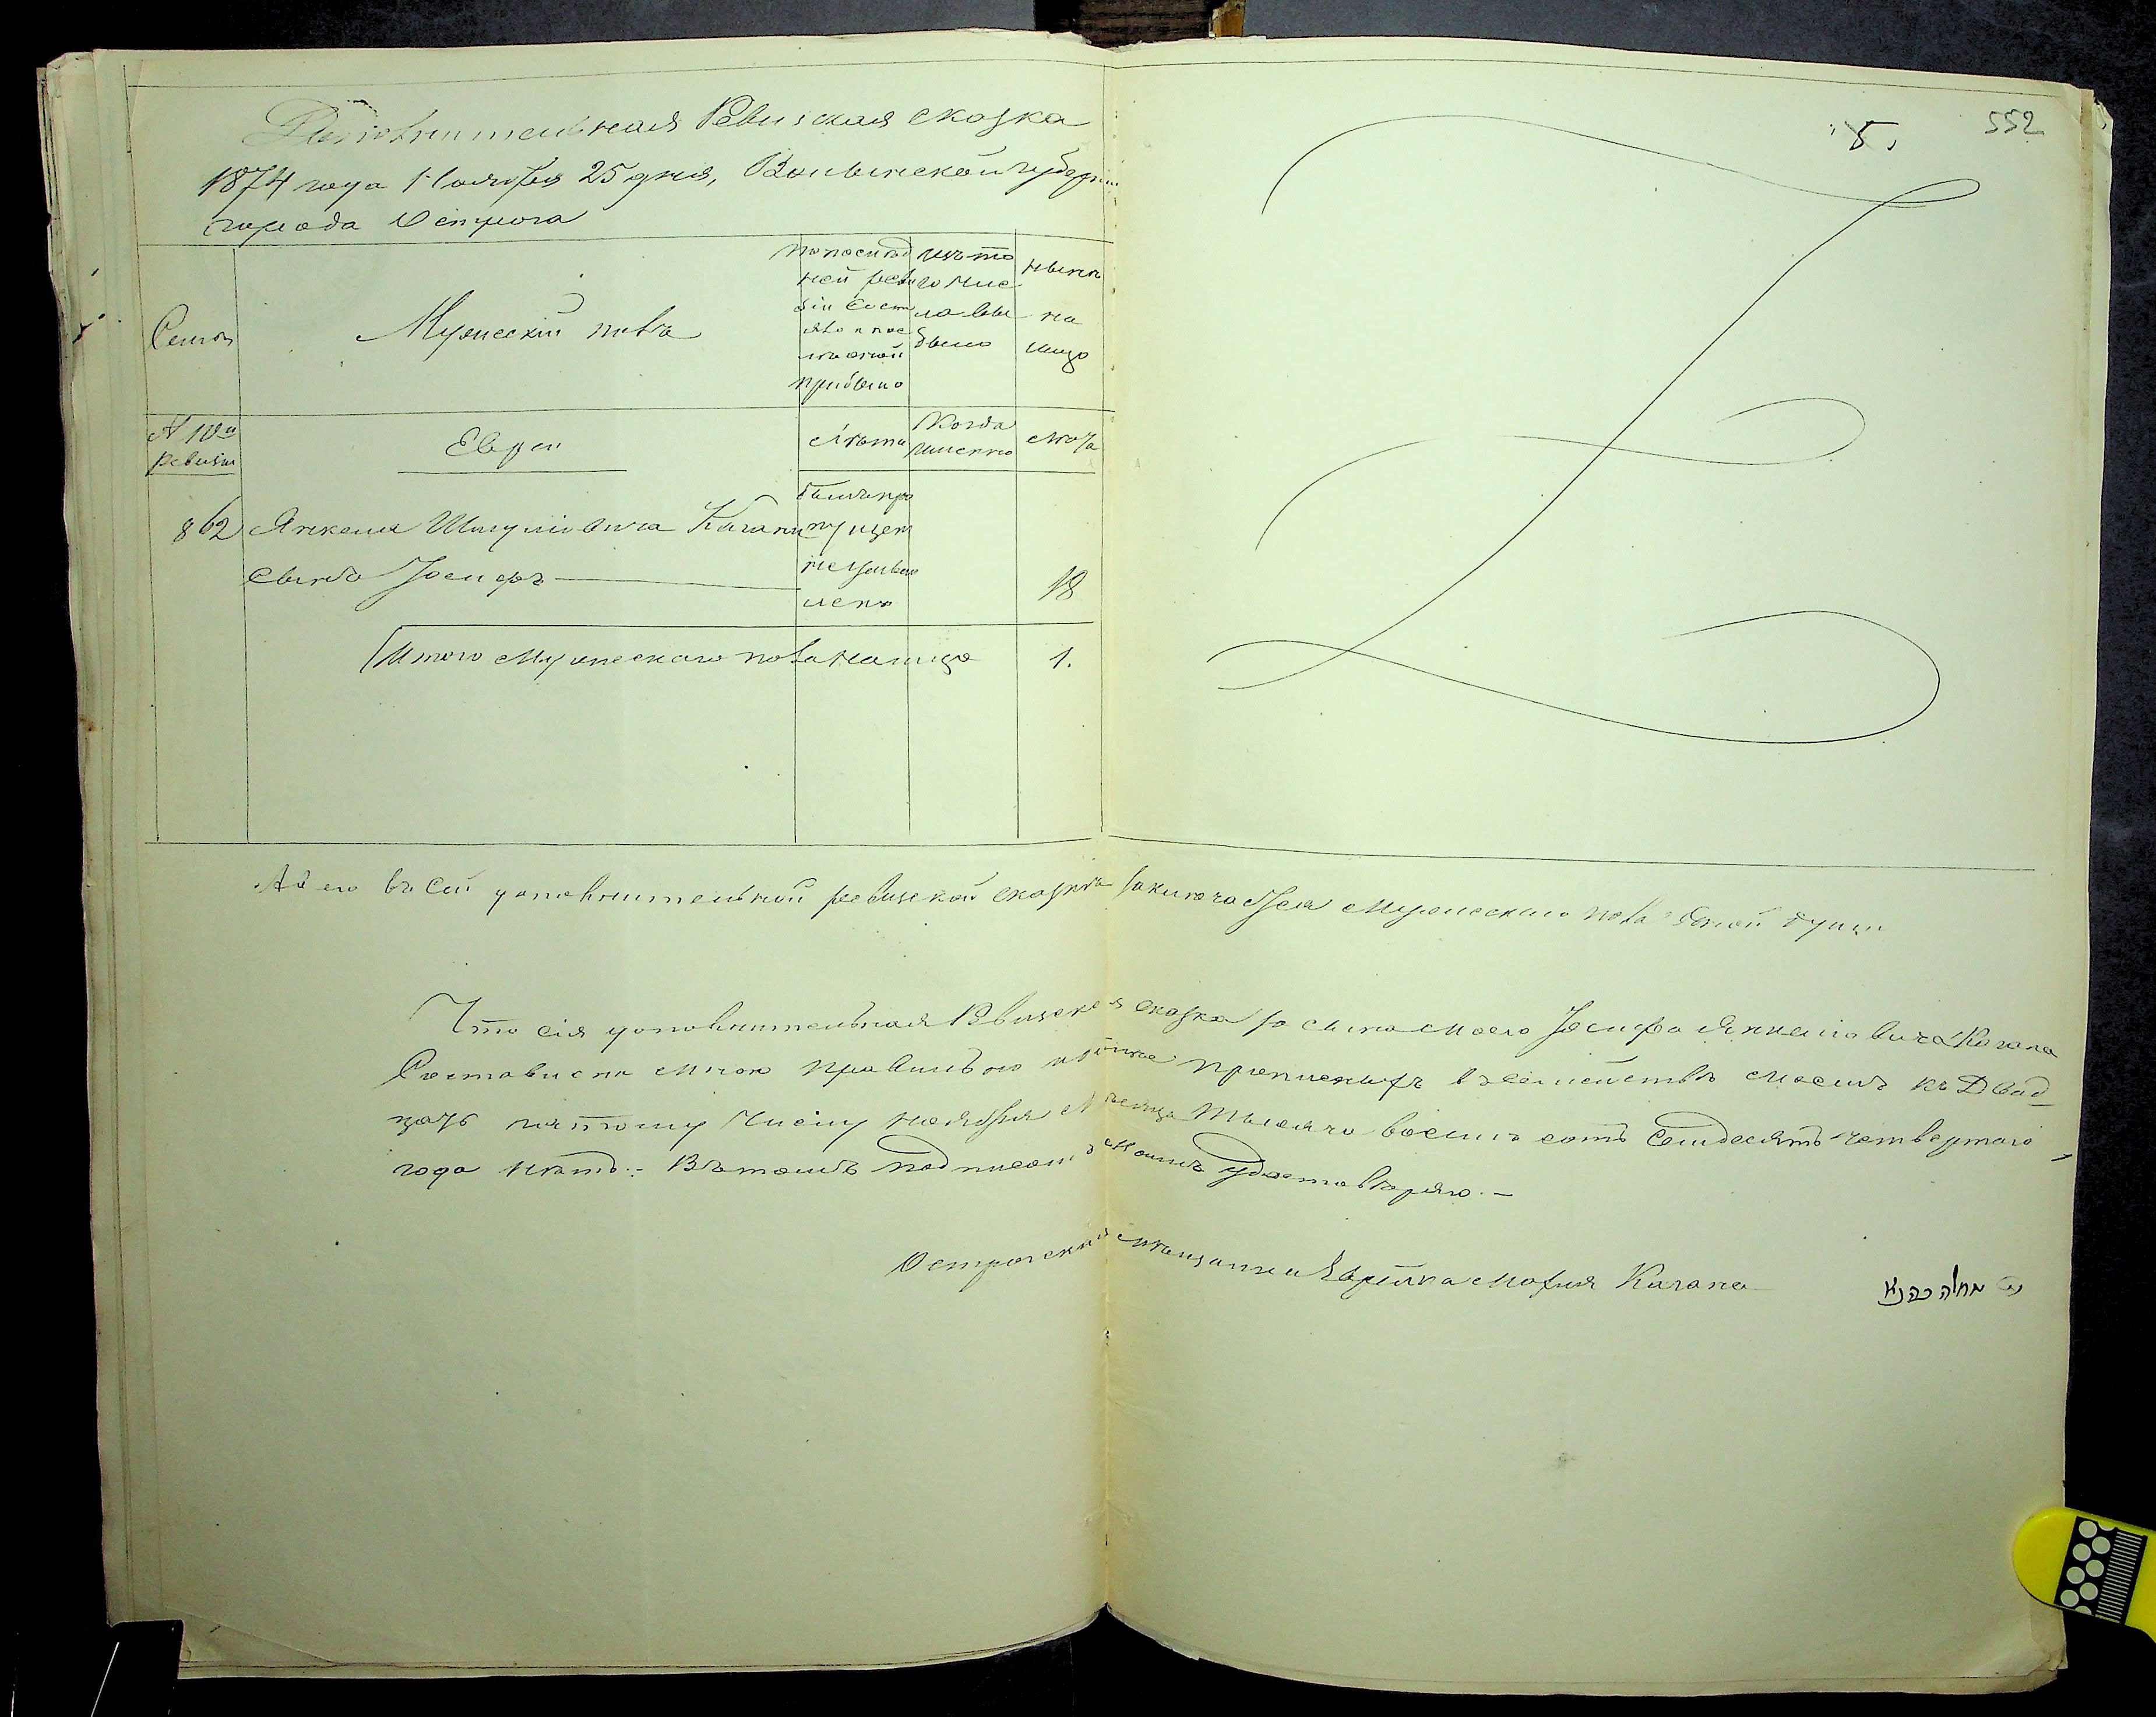 552
Дополнительная Ревиская сказка
1874 года Ноября 25 дня, Волынской губернии
города Острога
Семьи
Мужеский полъ
по послѣд
ней реви
зіи состо
яло и пос
лѣ оной
прибыло
изъ то
го чис
ла вы
было
нынѣ
на
лицо
№ 10й
ревизіи
Евреи
Лѣта
Когда
именно
Лѣта
862
Янкеля Шмулiовича Кагана
сынъ Іосифъ
былъ про
пущен
18
Итого Мужескаго пола на лицо
1.
А всего въ сей дополнительной ревиской сказкѣ заключается Мужескаго пола одной души
Что сія дополнительная Ревиская сказка за сына моего Іосифа Янкелiовича Кагана
Составлена мною правильно и прописныхъ в семействѣ моемъ къ Двад
цать пятому числу ноября Мѣсяца Тысяча восемь сотъ семдесятъ четвертаго
года нѣтъ. - Въ томъ подписомъ моимъ удостовѣряю. -
Острогская мѣщанка Еврейка Малка Кагана